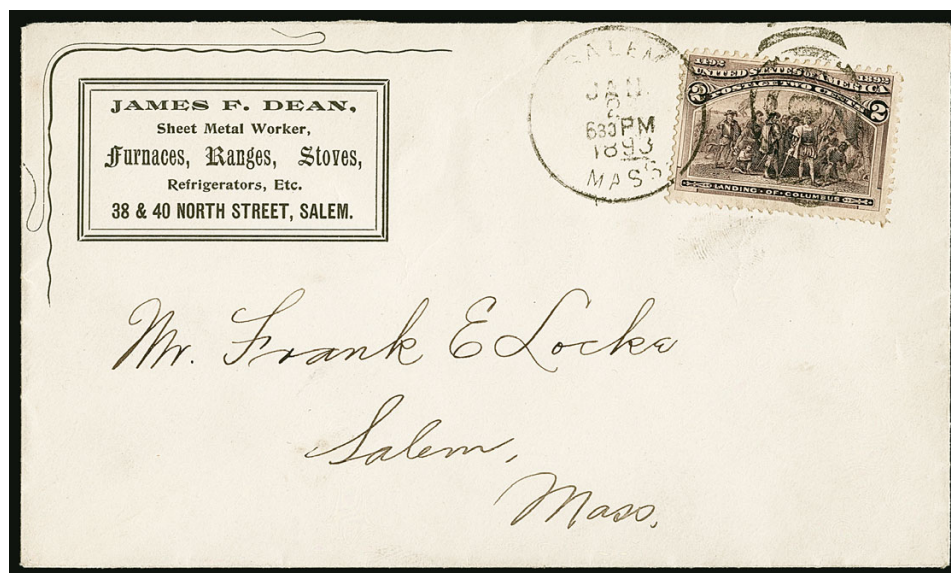 JAMES F. DEAN,
Sheet Metal Worker,
Furnaces, Ranges, Stoves,
Refrigerators, Etc.
38 & 40 NORTH STREET, SALEM.
SALEM
JAN.
2
630PM
1893
MASS
1492 1892
UNITED STATES OF AMERICA
2 POSTAGE TWO CENTS 2
LANDING · OF · COLUMBUS
Mr. Frank E Locke
Salem,
Mass.